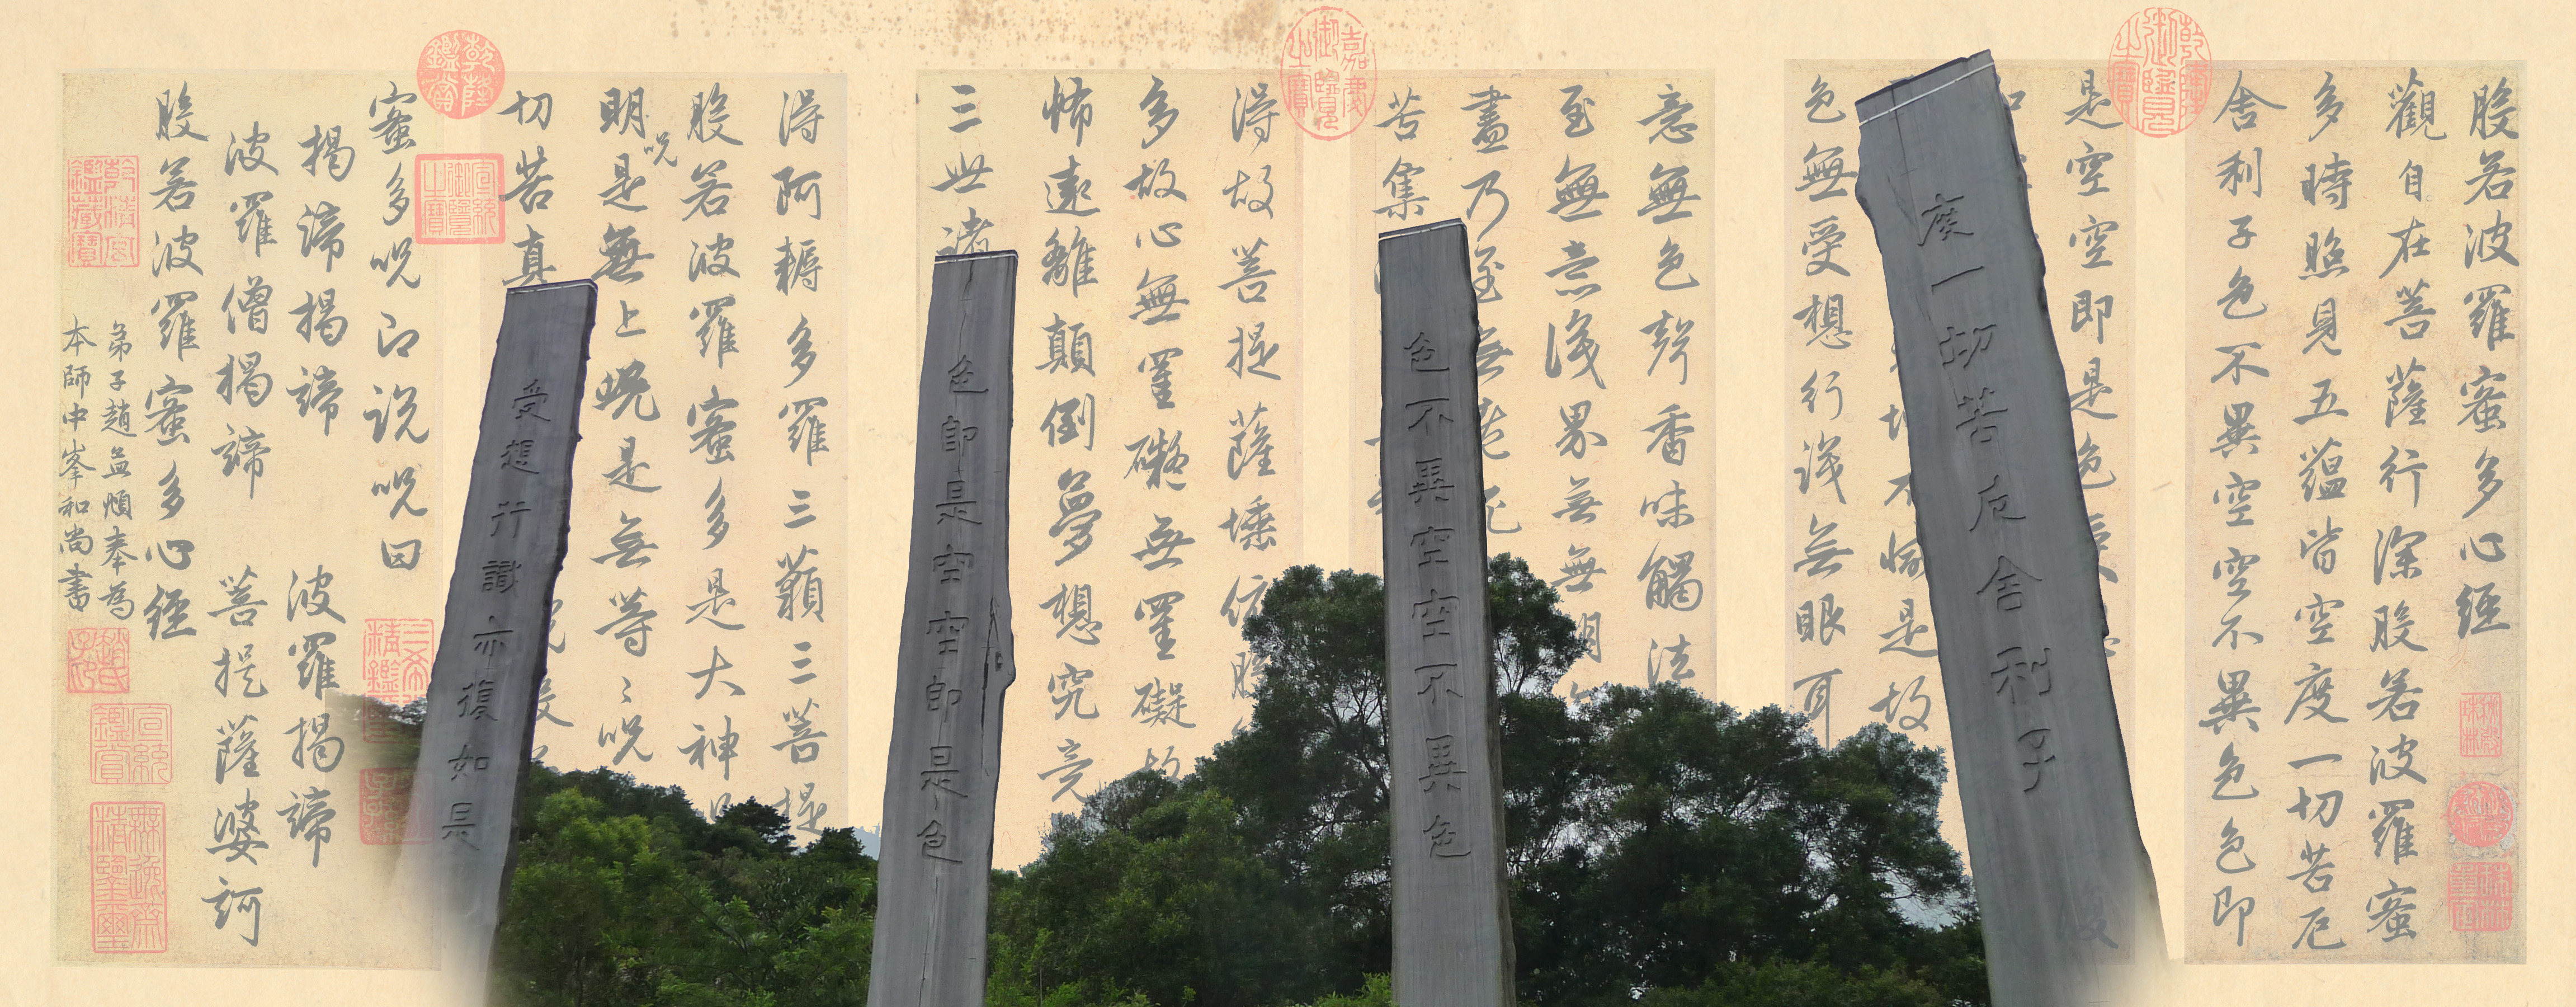 般若波羅蜜多心經
觀自在菩薩行深般若波羅蜜
多時照見五蘊皆空度一切苦厄
舍利子色不異空空不異色色即
是空空即是色
是故
色無受想行識無眼耳
意無色聲香味觸法
至無意識界無無明
盡乃至無老死
苦集
得故菩提薩埵依般
多故心無罣礙無罣礙故
怖遠離顛倒夢想究竟
三世諸
得阿耨多羅三藐三菩提
般若波羅蜜多是大神
明呪是無上呪是無等〻呪
切苦真
蜜多呪即說呪曰
揭諦揭諦 波羅揭諦
波羅僧揭諦 菩提薩婆訶
般若波羅蜜多心經
弟子趙孟頫奉為
本師中峯和尚書
度一切苦厄舍利子
色不異空空不異色
色即是空空即是色
受想行識亦復如是
乾隆御覽之寶
嘉慶御覽之寶
乾隆鑑賞
宣統御覽之寶
乾清宮鑑藏寶
宣統鑑賞
無逸齋精鑒璽